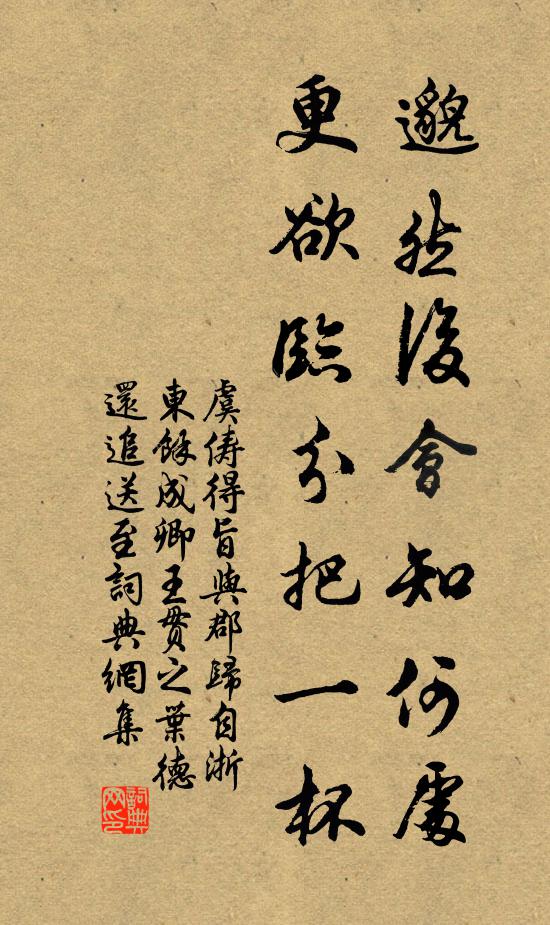 邈然後會知何處
更欲臨分把一杯
虞儔得旨與郡歸自浙
東餘成卿王貫之葉德
還追送至詞典網集
詞典
网印